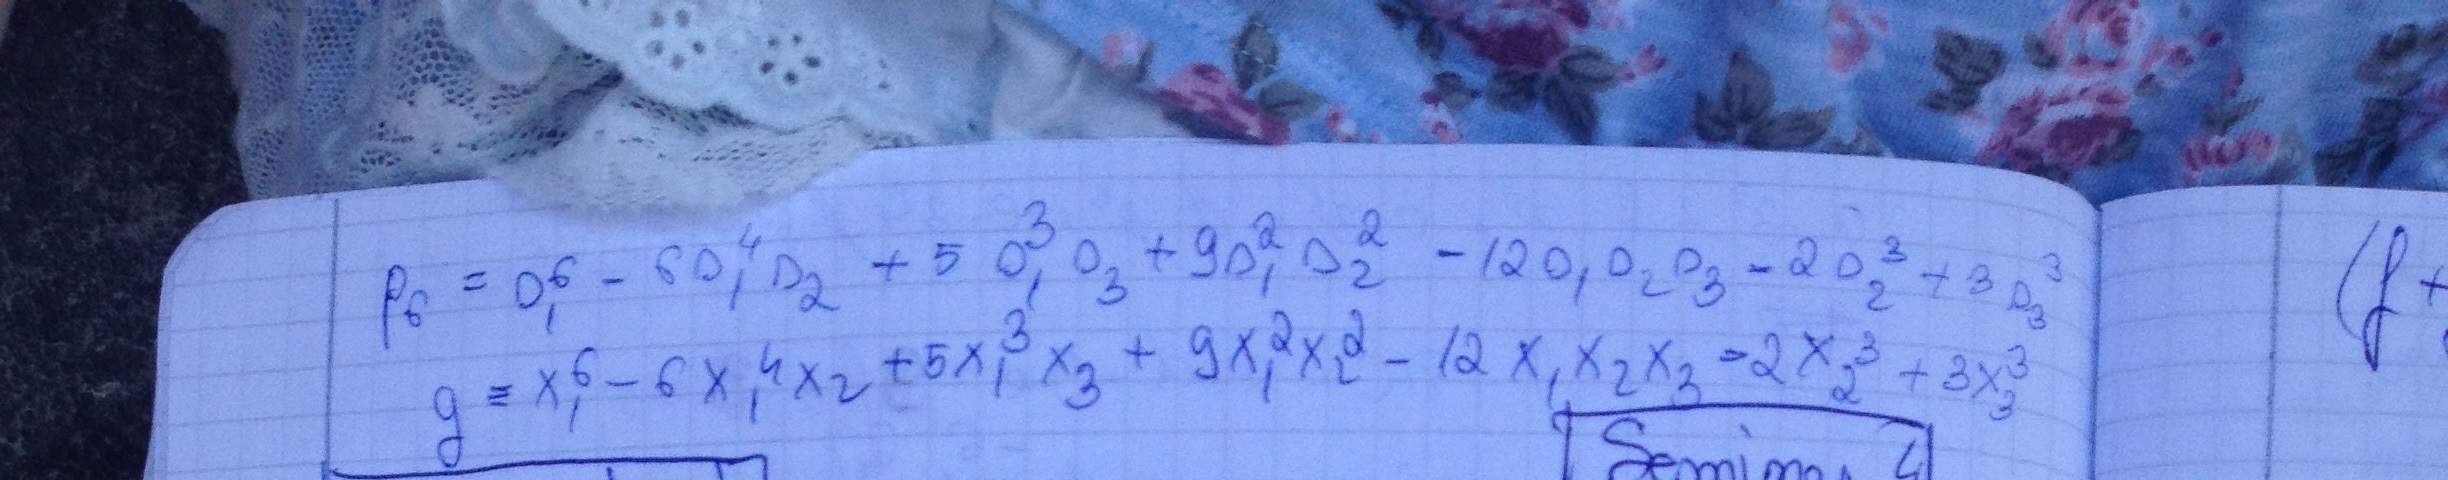 p₆ = σ₁⁶ - 6σ₁⁴σ₂ + 5σ₁³σ₃ + 9σ₁²σ₂² - 12σ₁σ₂σ₃ - 2σ₂³ + 3σ₃³
g = x₁⁶ - 6x₁⁴x₂ + 5x₁³x₃ + 9x₁²x₂² - 12x₁x₂x₃ - 2x₂³ + 3x₃³
(f +